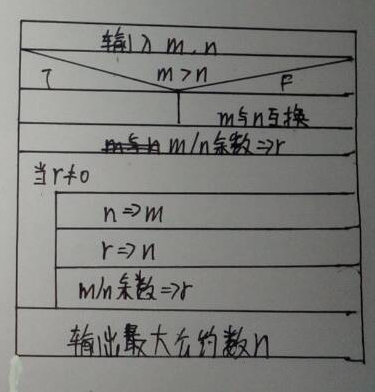 输入 m，n
m>n
T F
m与n互换
m/n余数⇒r
当r≠0
n⇒m
r⇒n
m/n余数⇒r
输出最大公约数n